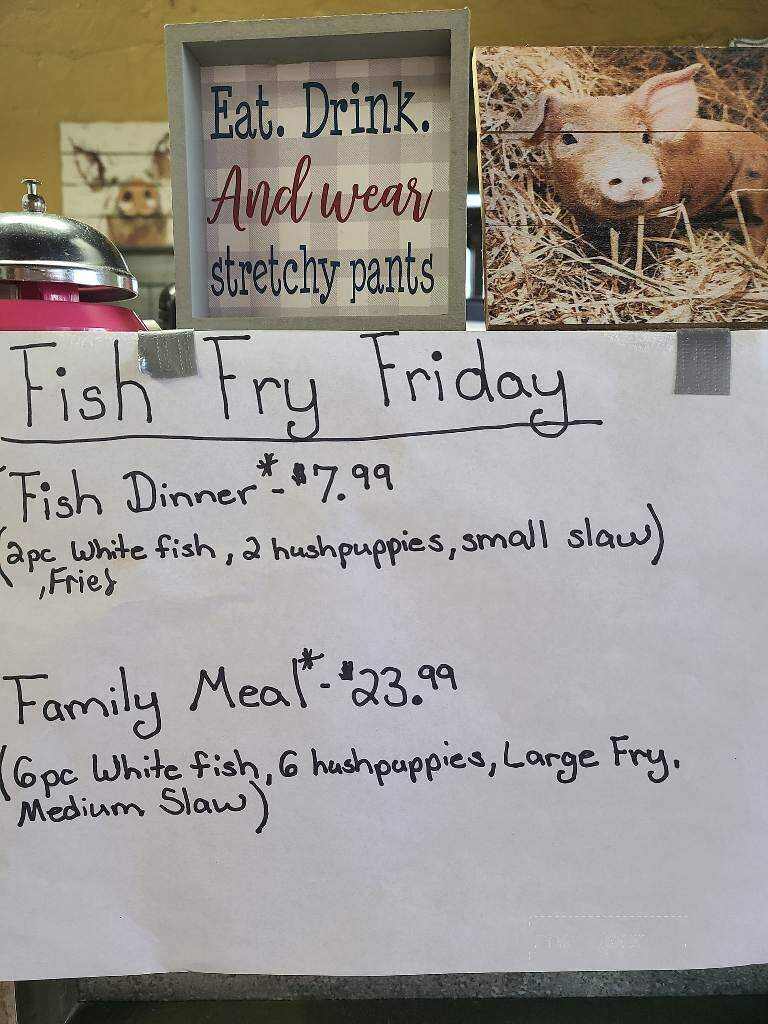 Eat. Drink.
And wear
stretchy pants
Fish Fry Friday
Fish Dinner*-$7.99
(2pc White fish, 2 hushpuppies, small slaw)
,Fries
Family Meal*-$23.99
(6pc White fish, 6 hushpuppies, Large Fry.
Medium Slaw)